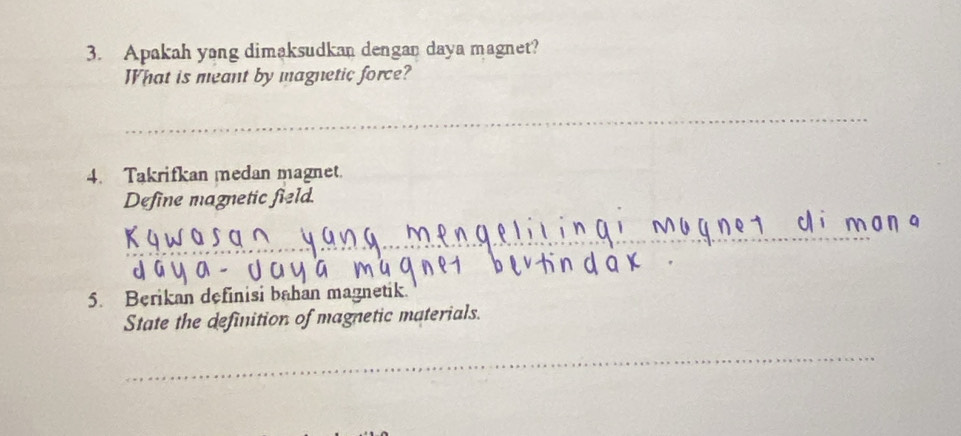 3. Apakah yang dimaksudkan dengan daya magnet?
What is meant by magnetic force?
4. Takrifkan medan magnet.
Define magnetic field.
Kawasan yang mengelilingi magnet di mana
daya-daya magnet bertindak.
5. Berikan definisi bahan magnetik.
State the definition of magnetic materials.